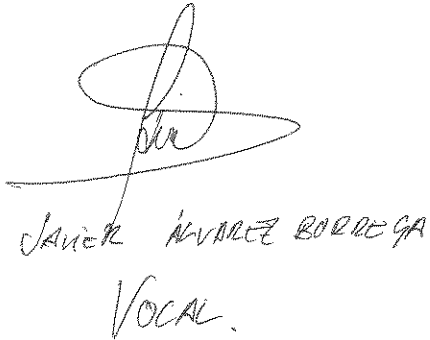 JAVIER ÁLVAREZ BORREGA
VOCAL.